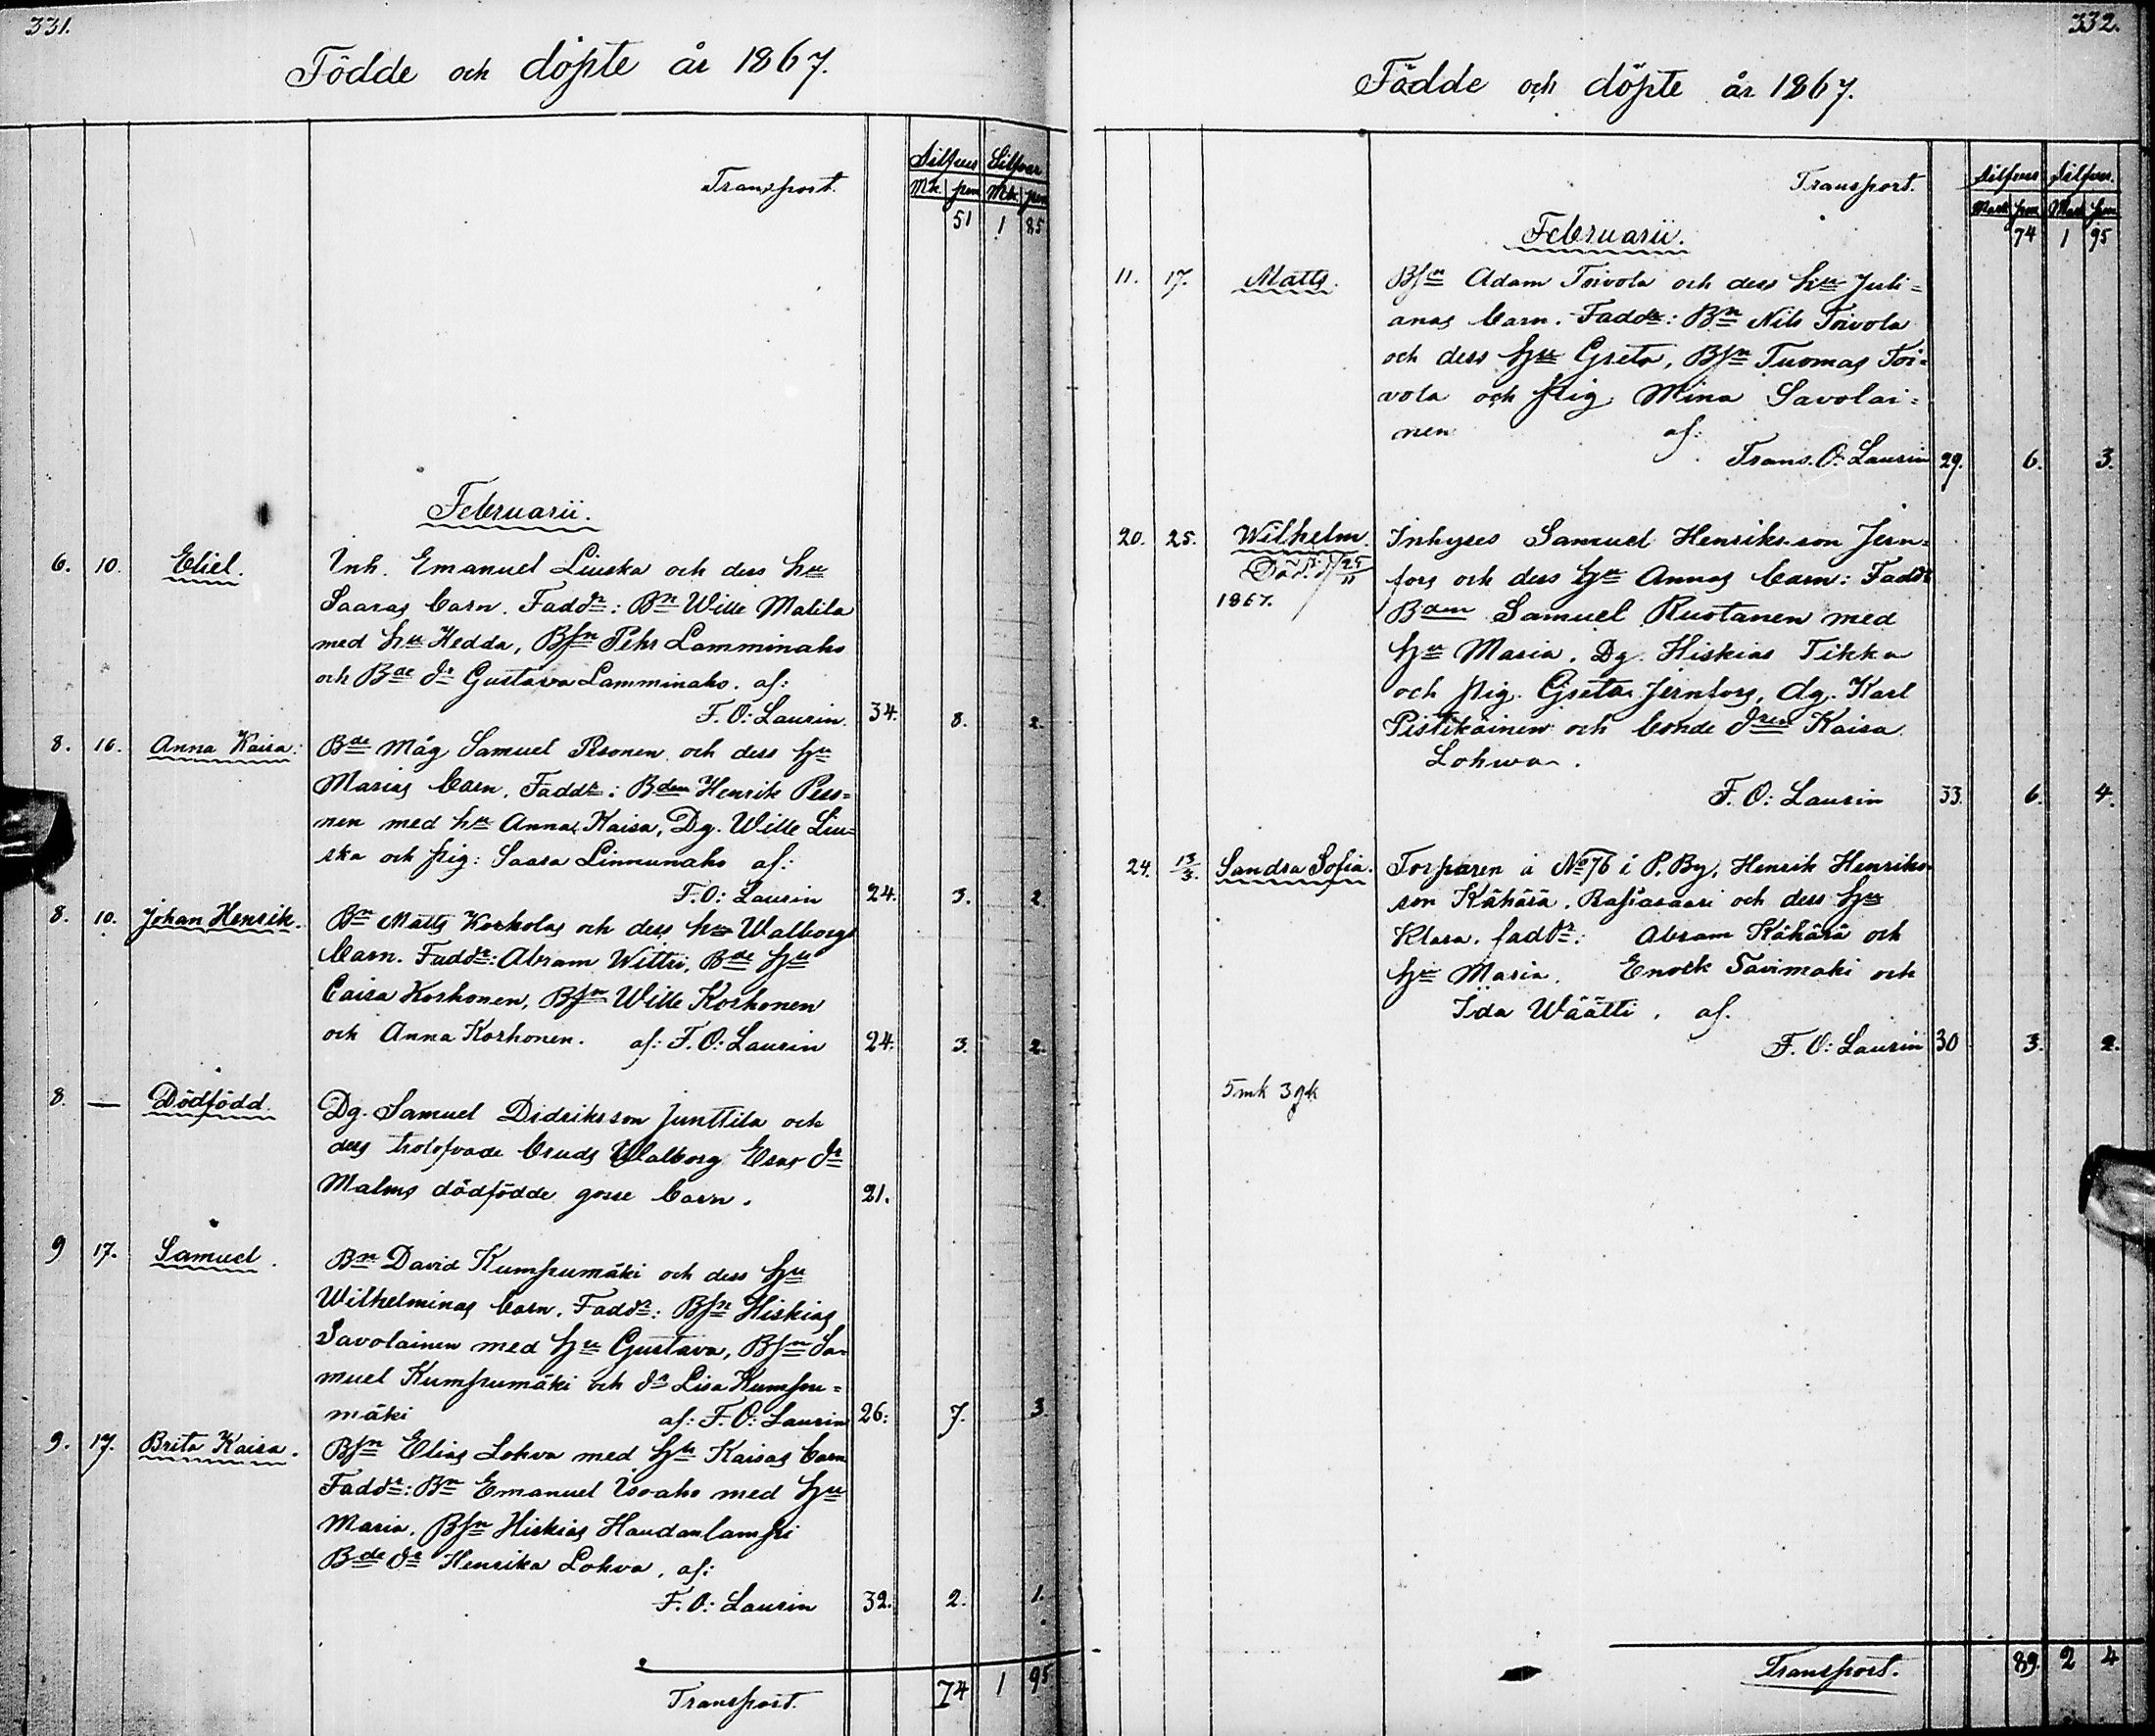 331.
Födde och döpte år 1867.
Transport.
Silfver Silfver
Mk pen Mk pen
51 1 85
Februarii.
6. 10. Eliel. Inh. Emanuel Liuska och dess hu
Saaras barn. Faddr: Bn Wille Matila
med hu Hedda, Bsn Pehr Lamminaho
och Bde dr Gustava Lamminaho. af:
F. O: Laurin. 34. 8. 2.
8. 16. Anna Kaisa: Bde Måg Samuel Pesonen och dess hu
Marias barn. Faddr: Bden Henrik Peso=
nen med hu Anna Kaisa, Dg. Wille Liu=
ska och pig: Saara Linnunaho af:
F. O: Laurin 24. 3. 2.
8. 10. Johan Henrik. Bn Matts Korholas och dess hu Walborgs
barn. Faddr: Abram Wittri, Bde hu
Caisa Korhonen, Bsn Wille Korhonen
och Anna Korhonen. af: F. O: Laurin 24. 3. 2.
8. — Dödfödd. Dg. Samuel Didriksson Junttila och
dess trolofvade bruds Walborg Esas dr
Malms dödfödde gosse barn. 21.
9 17. Samuel. Bn David Kumpumäki och dess hu
Wilhelminas barn. Faddr: Bsn Hiskias
Savolainen med hu Gustava, Bsn Sa=
muel Kumpumäki och dr Lisa Kumpu=
mäki af: F. O: Laurin 26: 7. 3.
9. 17. Brita Kaisa. Bsn Elias Lohva med hu Kaisas barn
Faddr: Bn Emanuel Isoaho med hu
Maria. Bsn Hiskias Haudanlampi
Bde dr Henrika Lohva, af:
F. O: Laurin 32. 2. 1.
Transport. 74 1 95
332.
Födde och döpte år 1867.
Transport.
Silfver Silfver.
Mark pen Mark pen
74 1 95
Februarii.
11. 17. Matts. Bsn Adam Toivola och dess hu Juli=
anas barn. Faddr: Bn Nils Toivola
och dess hu Greta, Bsn Tuomas Toi=
vola och pig Mina Savolai=
nen af:
Trans. O: Laurin 29. 6. 3.
20. 25. Wilhelm. Inhyses Samuel Henriksson Jern=
Död d 25/11 fors och dess hu Annas barn: Faddr
1867. Bden Samuel Ruotanen med
hu Maria. Dg. Hiskias Tikka
och pig. Greta Jernfors, dg. Karl
Pistikäinen och bonde dren Kaisa
Lohwa.
F. O: Laurin 33. 6. 4.
24. 13/3. Sandra Sofia. Torparen å No 76 i P. By, Henrik Henriks-
son Kähärä, Rapiasaari och dess hu
Klara. faddr: Abram Kähärä och
hu Maria. Enock Savimaki och
Ida Wäätti. af.
F. O: Laurin 30 3. 2.
5 mk 39 k
Transport. 89. 2 4